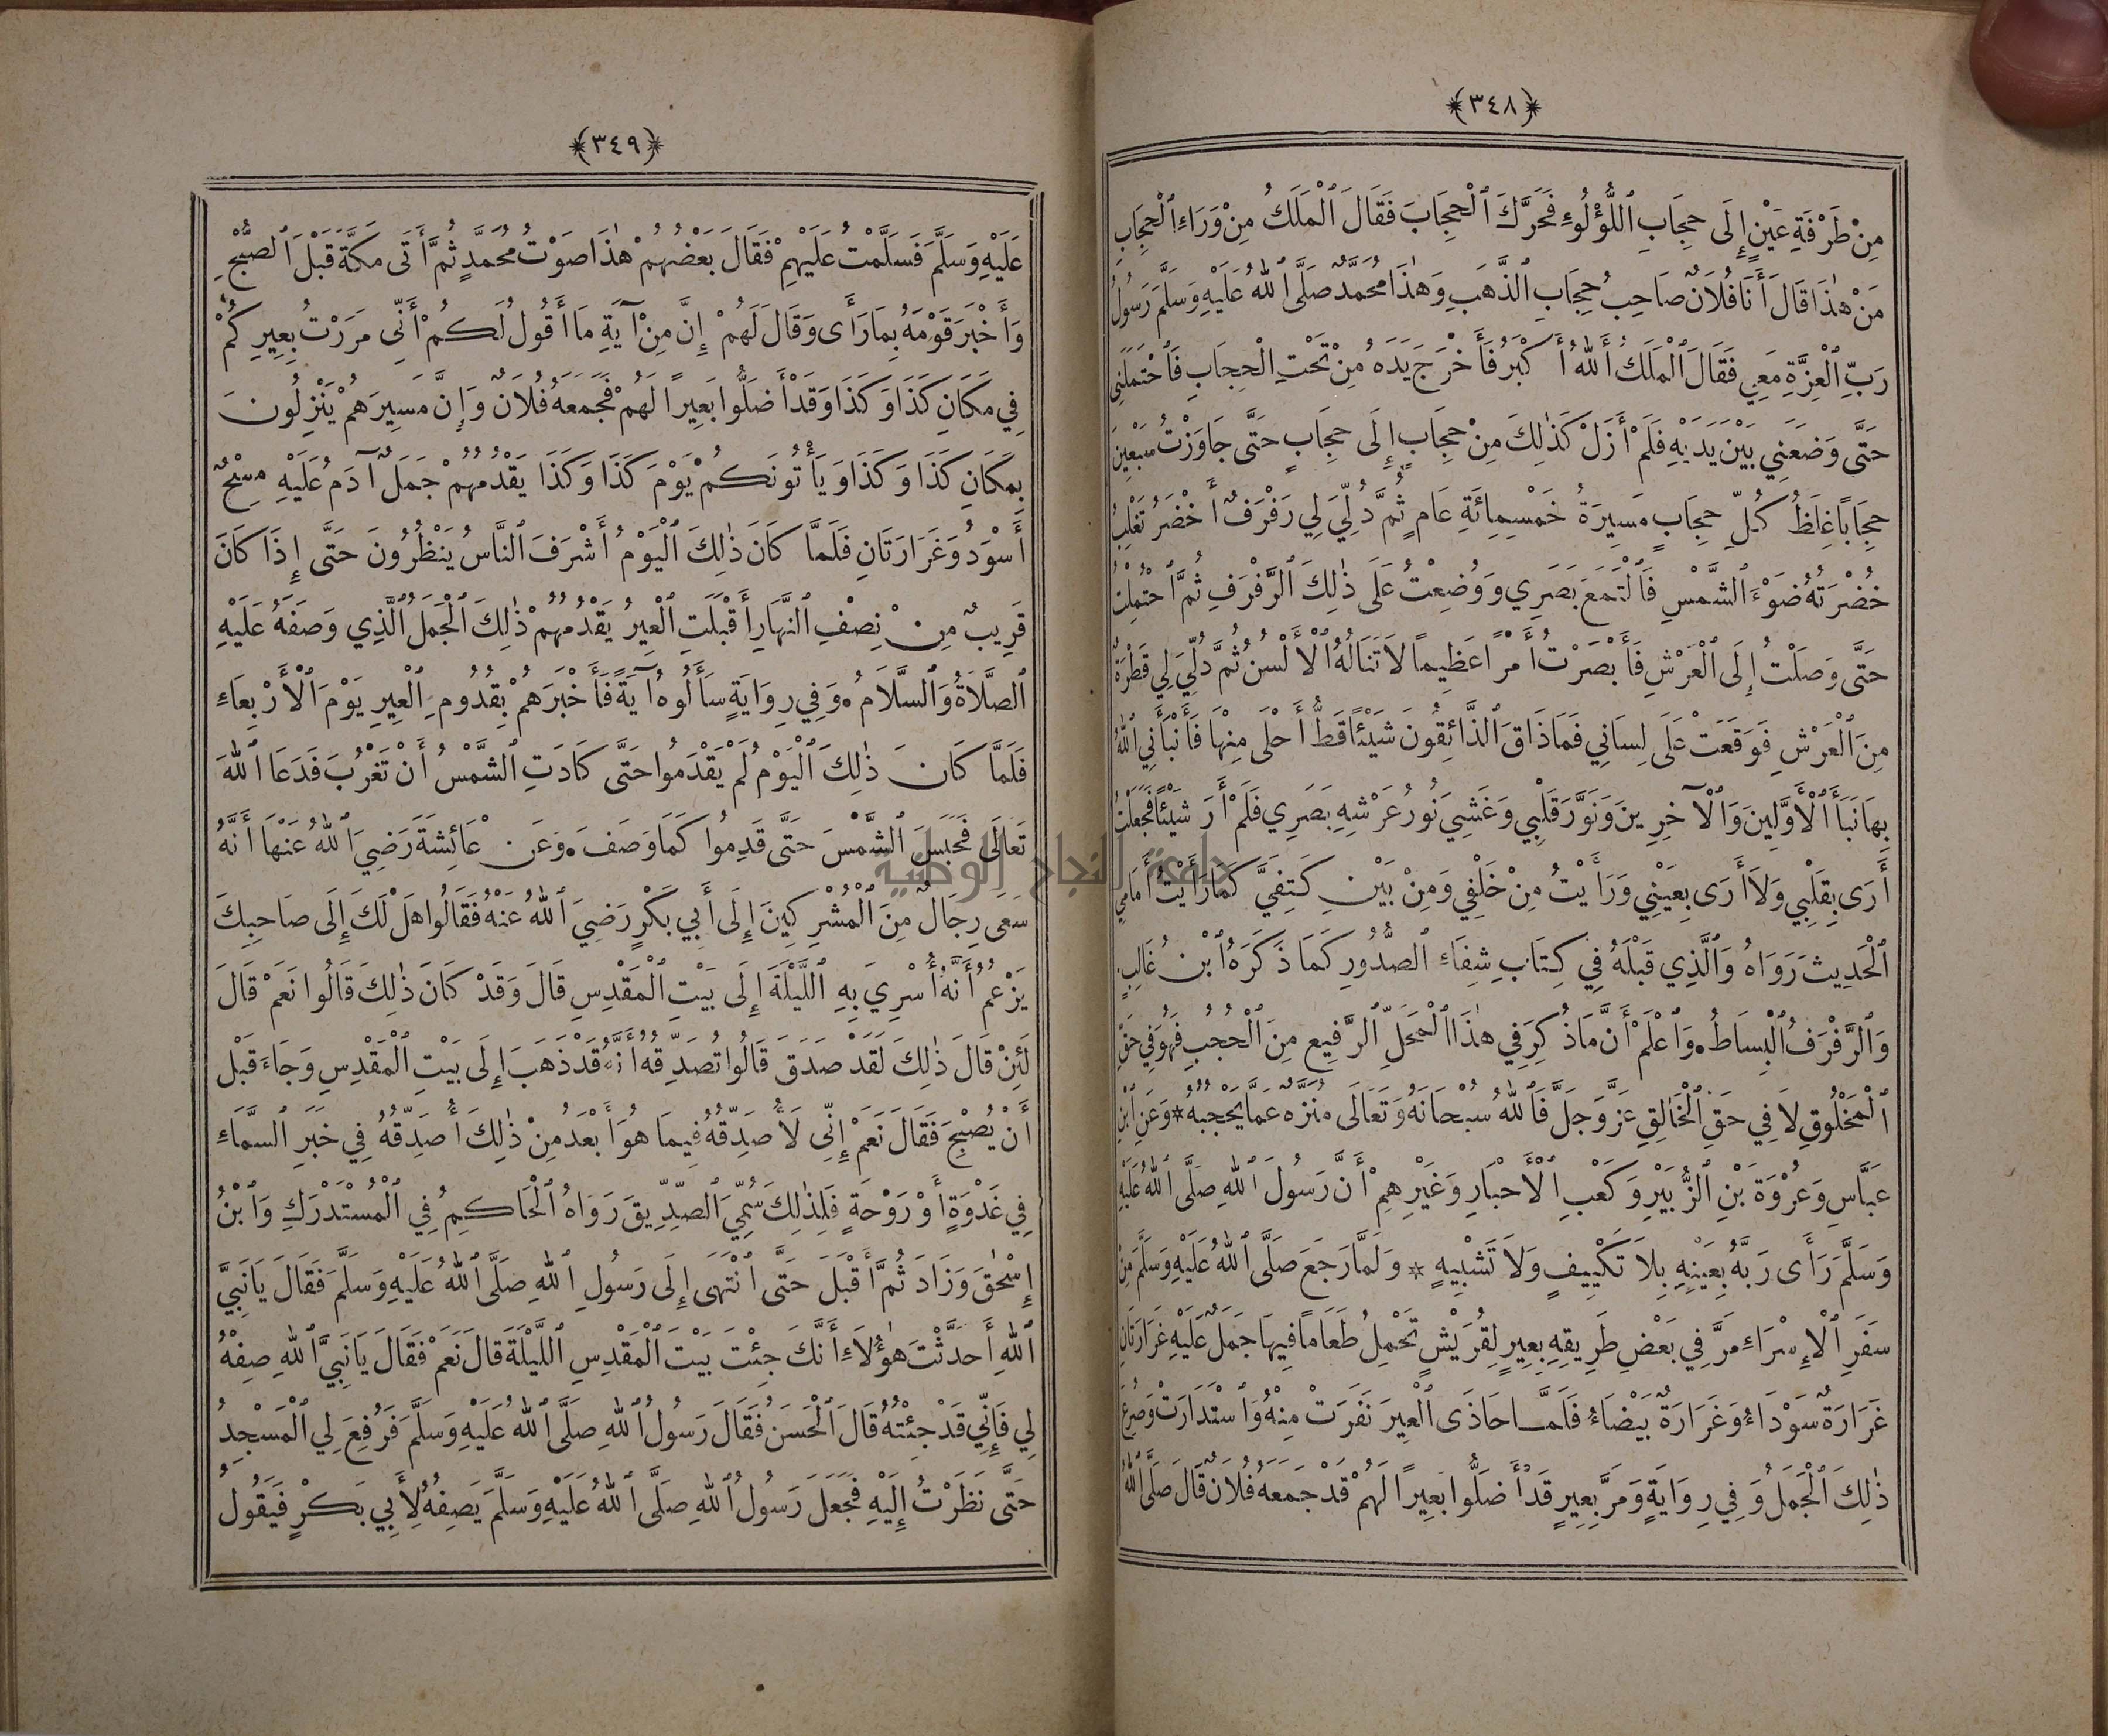 ﴿٣٤٨﴾
مِنْ طَرْفَةِ عَيْنٍ إِلَى حِجَابِ ٱللُّؤْلُوءِ فَحَرَّكَ ٱلْحِجَابَ فَقَالَ ٱلْمَلَكُ مِنْ وَرَاءِ ٱلْحِجَابِ
مَنْ هٰذَا قَالَ أَنَا فُلَانٌ صَاحِبُ حِجَابِ ٱلذَّهَبِ وَهٰذَا مُحَمَّدٌ صَلَّى ٱللهُ عَلَيْهِ وَسَلَّمَ رَسُولُ
رَبِّ ٱلْعِزَّةِ مَعِي فَقَالَ ٱلْمَلَكُ أَللهُ أَكْبَرُ فَأَخْرَجَ يَدَهُ مِنْ تَحْتِ ٱلْحِجَابِ فَٱحْتَمَلَنِي
حَتَّى وَضَعَنِي بَيْنَ يَدَيْهِ فَلَمْ أَزَلْ كَذٰلِكَ مِنْ حِجَابٍ إِلَى حِجَابٍ حَتَّى جَاوَزْتُ سَبْعِينَ
حِجَابًا غِلَظُ كُلِّ حِجَابٍ مَسِيرَةُ خَمْسِمِائَةِ عَامٍ ثُمَّ دُلِّيَ لِي رَفْرَفٌ أَخْضَرُ تَغْلِبُ
خُضْرَتُهُ ضَوْءَ ٱلشَّمْسِ فَٱلْتَمَعَ بَصَرِي وَوُضِعْتُ عَلَى ذٰلِكَ ٱلرَّفْرَفِ ثُمَّ ٱحْتُمِلْتُ
حَتَّى وَصَلْتُ إِلَى ٱلْعَرْشِ فَأَبْصَرْتُ أَمْرًا عَظِيمًا لَا تَنَالُهُ ٱلْأَلْسُنُ ثُمَّ دُلِّيَ لِي قَطْرَةٌ
مِنَ ٱلْعَرْشِ فَوَقَعَتْ عَلَى لِسَانِي فَمَا ذَاقَ ٱلذَّائِقُونَ شَيْئًا قَطُّ أَحْلَى مِنْهَا فَأَنْبَأَنِي ٱللهُ
بِهَا نَبَأَ ٱلْأَوَّلِينَ وَٱلْآخِرِينَ وَنَوَّرَ قَلْبِي وَغَشِيَ نُورُ عَرْشِهِ بَصَرِي فَلَمْ أَرَ شَيْئًا فَجَعَلْتُ
أَرَى بِقَلْبِي وَلَا أَرَى بِعَيْنِي وَرَأَيْتُ مِنْ خَلْفِي وَمِنْ بَيْنِ كَتِفَيَّ كَمَا رَأَيْتُ أَمَامِي
ٱلْحَدِيثَ رَوَاهُ وَٱلَّذِي قَبْلَهُ فِي كِتَابِ شِفَاءِ ٱلصُّدُورِ كَمَا ذَكَرَهُ ٱبْنُ غَالِبٍ.
وَٱلرَّفْرَفُ ٱلْبِسَاطُ. وَٱعْلَمْ أَنَّ مَا ذُكِرَ فِي هٰذَا ٱلْمَحَلِّ ٱلرَّفِيعِ مِنَ ٱلْحُجُبِ فَهُوَ فِي حَقِّ
ٱلْمَخْلُوقِ لَا فِي حَقِّ ٱلْخَالِقِ عَزَّ وَجَلَّ فَٱللهُ سُبْحَانَهُ وَتَعَالَى مُنَزَّهٌ عَمَّا يَحْجُبُهُ * وَعَنِ ٱبْنِ
عَبَّاسٍ وَعُرْوَةَ بْنِ ٱلزُّبَيْرِ وَكَعْبِ ٱلْأَحْبَارِ وَغَيْرِهِمْ أَنَّ رَسُولَ ٱللهِ صَلَّى ٱللهُ عَلَيْهِ
وَسَلَّمَ رَأَى رَبَّهُ بِعَيْنِهِ بِلَا تَكْيِيفٍ وَلَا تَشْبِيهٍ * وَلَمَّا رَجَعَ صَلَّى ٱللهُ عَلَيْهِ وَسَلَّمَ مِنْ
سَفَرِ ٱلْإِسْرَاءِ مَرَّ فِي بَعْضِ طَرِيقِهِ بِعِيرٍ لِقُرَيْشٍ تَحْمِلُ طَعَامًا فِيهَا جَمَلٌ عَلَيْهِ غَرَارَتَانِ
غَرَارَةٌ سَوْدَاءُ وَغَرَارَةٌ بَيْضَاءُ فَلَمَّا حَاذَى ٱلْعِيرَ نَفَرَتْ مِنْهُ وَٱسْتَدَارَتْ وَصُرِعَ
ذٰلِكَ ٱلْجَمَلُ وَفِي رِوَايَةٍ وَمَرَّ بِعِيرٍ قَدْ أَضَلُّوا بَعِيرًا لَهُمْ قَدْ جَمَعَهُ فُلَانٌ قَالَ صَلَّى ٱللهُ
﴿٣٤٩﴾
عَلَيْهِ وَسَلَّمَ فَسَلَّمْتُ عَلَيْهِمْ فَقَالَ بَعْضُهُمْ هٰذَا صَوْتُ مُحَمَّدٍ ثُمَّ أَتَى مَكَّةَ قَبْلَ ٱلصُّبْحِ
وَأَخْبَرَ قَوْمَهُ بِمَا رَأَى وَقَالَ لَهُمْ إِنَّ مِنْ آيَةِ مَا أَقُولُ لَكُمْ أَنِّي مَرَرْتُ بِعِيرِكُمْ
فِي مَكَانِ كَذَا وَكَذَا وَقَدْ أَضَلُّوا بَعِيرًا لَهُمْ فَجَمَعَهُ فُلَانٌ وَإِنَّ مَسِيرَهُمْ يَنْزِلُونَ
بِمَكَانِ كَذَا وَكَذَا وَيَأْتُونَكُمْ يَوْمَ كَذَا وَكَذَا يَقْدُمُهُمْ جَمَلٌ آدَمُ عَلَيْهِ مِسْحٌ
أَسْوَدُ وَغَرَارَتَانِ فَلَمَّا كَانَ ذٰلِكَ ٱلْيَوْمُ أَشْرَفَ ٱلنَّاسُ يَنْظُرُونَ حَتَّى إِذَا كَانَ
قَرِيبٌ مِنْ نِصْفِ ٱلنَّهَارِ أَقْبَلَتِ ٱلْعِيرُ يَقْدُمُهُمْ ذٰلِكَ ٱلْجَمَلُ ٱلَّذِي وَصَفَهُ عَلَيْهِ
ٱلصَّلَاةُ وَٱلسَّلَامُ. وَفِي رِوَايَةٍ سَأَلُوهُ آيَةً فَأَخْبَرَهُمْ بِقُدُومِ ٱلْعِيرِ يَوْمَ ٱلْأَرْبِعَاءِ
فَلَمَّا كَانَ ذٰلِكَ ٱلْيَوْمُ لَمْ يَقْدَمُوا حَتَّى كَادَتِ ٱلشَّمْسُ أَنْ تَغْرُبَ فَدَعَا ٱللهَ
تَعَالَى فَحَبَسَ ٱلشَّمْسَ حَتَّى قَدِمُوا كَمَا وَصَفَ. وَعَنْ عَائِشَةَ رَضِيَ ٱللهُ عَنْهَا أَنَّهُ
سَعَى رِجَالٌ مِنَ ٱلْمُشْرِكِينَ إِلَى أَبِي بَكْرٍ رَضِيَ ٱللهُ عَنْهُ فَقَالُوا هَلْ لَكَ إِلَى صَاحِبِكَ
يَزْعُمُ أَنَّهُ أُسْرِيَ بِهِ ٱللَّيْلَةَ إِلَى بَيْتِ ٱلْمَقْدِسِ قَالَ وَقَدْ كَانَ ذٰلِكَ قَالُوا نَعَمْ قَالَ
لَئِنْ قَالَ ذٰلِكَ لَقَدْ صَدَقَ قَالُوا تُصَدِّقُهُ أَنَّهُ قَدْ ذَهَبَ إِلَى بَيْتِ ٱلْمَقْدِسِ وَجَاءَ قَبْلَ
أَنْ يُصْبِحَ فَقَالَ نَعَمْ إِنِّي لَأُصَدِّقُهُ فِيمَا هُوَ أَبْعَدُ مِنْ ذٰلِكَ أُصَدِّقُهُ فِي خَبَرِ ٱلسَّمَاءِ
فِي غَدْوَةٍ أَوْ رَوْحَةٍ فَلِذٰلِكَ سُمِّيَ ٱلصِّدِّيقَ رَوَاهُ ٱلْحَاكِمُ فِي ٱلْمُسْتَدْرَكِ وَٱبْنُ
إِسْحٰقَ وَزَادَ ثُمَّ أَقْبَلَ حَتَّى ٱنْتَهَى إِلَى رَسُولِ ٱللهِ صَلَّى ٱللهُ عَلَيْهِ وَسَلَّمَ فَقَالَ يَا نَبِيَّ
ٱللهِ أَحَدَّثْتَ هٰؤُلَاءِ أَنَّكَ جِئْتَ بَيْتَ ٱلْمَقْدِسِ ٱللَّيْلَةَ قَالَ نَعَمْ فَقَالَ يَا نَبِيَّ ٱللهِ صِفْهُ
لِي فَإِنِّي قَدْ جِئْتُهُ قَالَ ٱلْحَسَنُ فَقَالَ رَسُولُ ٱللهِ صَلَّى ٱللهُ عَلَيْهِ وَسَلَّمَ فَرُفِعَ لِي ٱلْمَسْجِدُ
حَتَّى نَظَرْتُ إِلَيْهِ فَجَعَلَ رَسُولُ ٱللهِ صَلَّى ٱللهُ عَلَيْهِ وَسَلَّمَ يَصِفُهُ لِأَبِي بَكْرٍ فَيَقُولُ
جامعة النجاح الوطنية